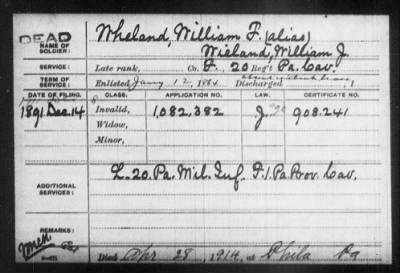 DEAD
NAME OF SOLDIER:
Wheland, William F. (alias)
Wieland, William J.
SERVICE:
Late rank, Co. F. 20 Reg't Pa. Cav.
TERM OF SERVICE:
Enlisted Jany 12, 1864 Discharged
DATE OF FILING. CLASS. APPLICATION NO. LAW. CERTIFICATE NO.
1891 Dec. 14 Invalid, 1,082,382 J 908.241
Widow,
Minor,
ADDITIONAL SERVICES:
L. 20. Pa. Mil. Inf. F. 1. Pa Prov. Cav.
REMARKS:
Died Apr 28, 1914, at Phila Pa